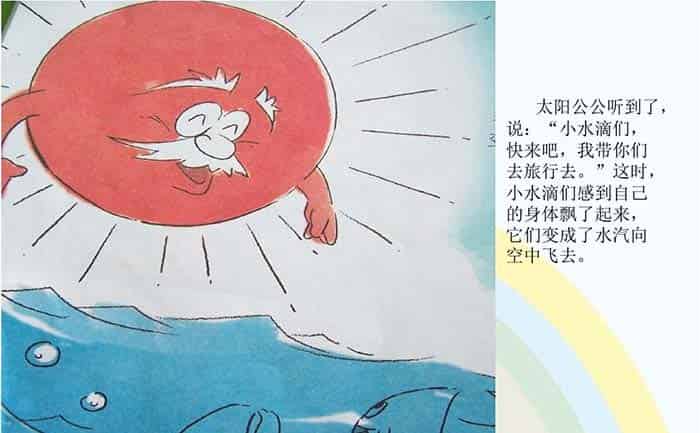 太阳公公听到了，
说：“小水滴们，
快来吧，我带你们
去旅行去。”这时，
小水滴们感到自己
的身体飘了起来，
它们变成了水汽向
空中飞去。